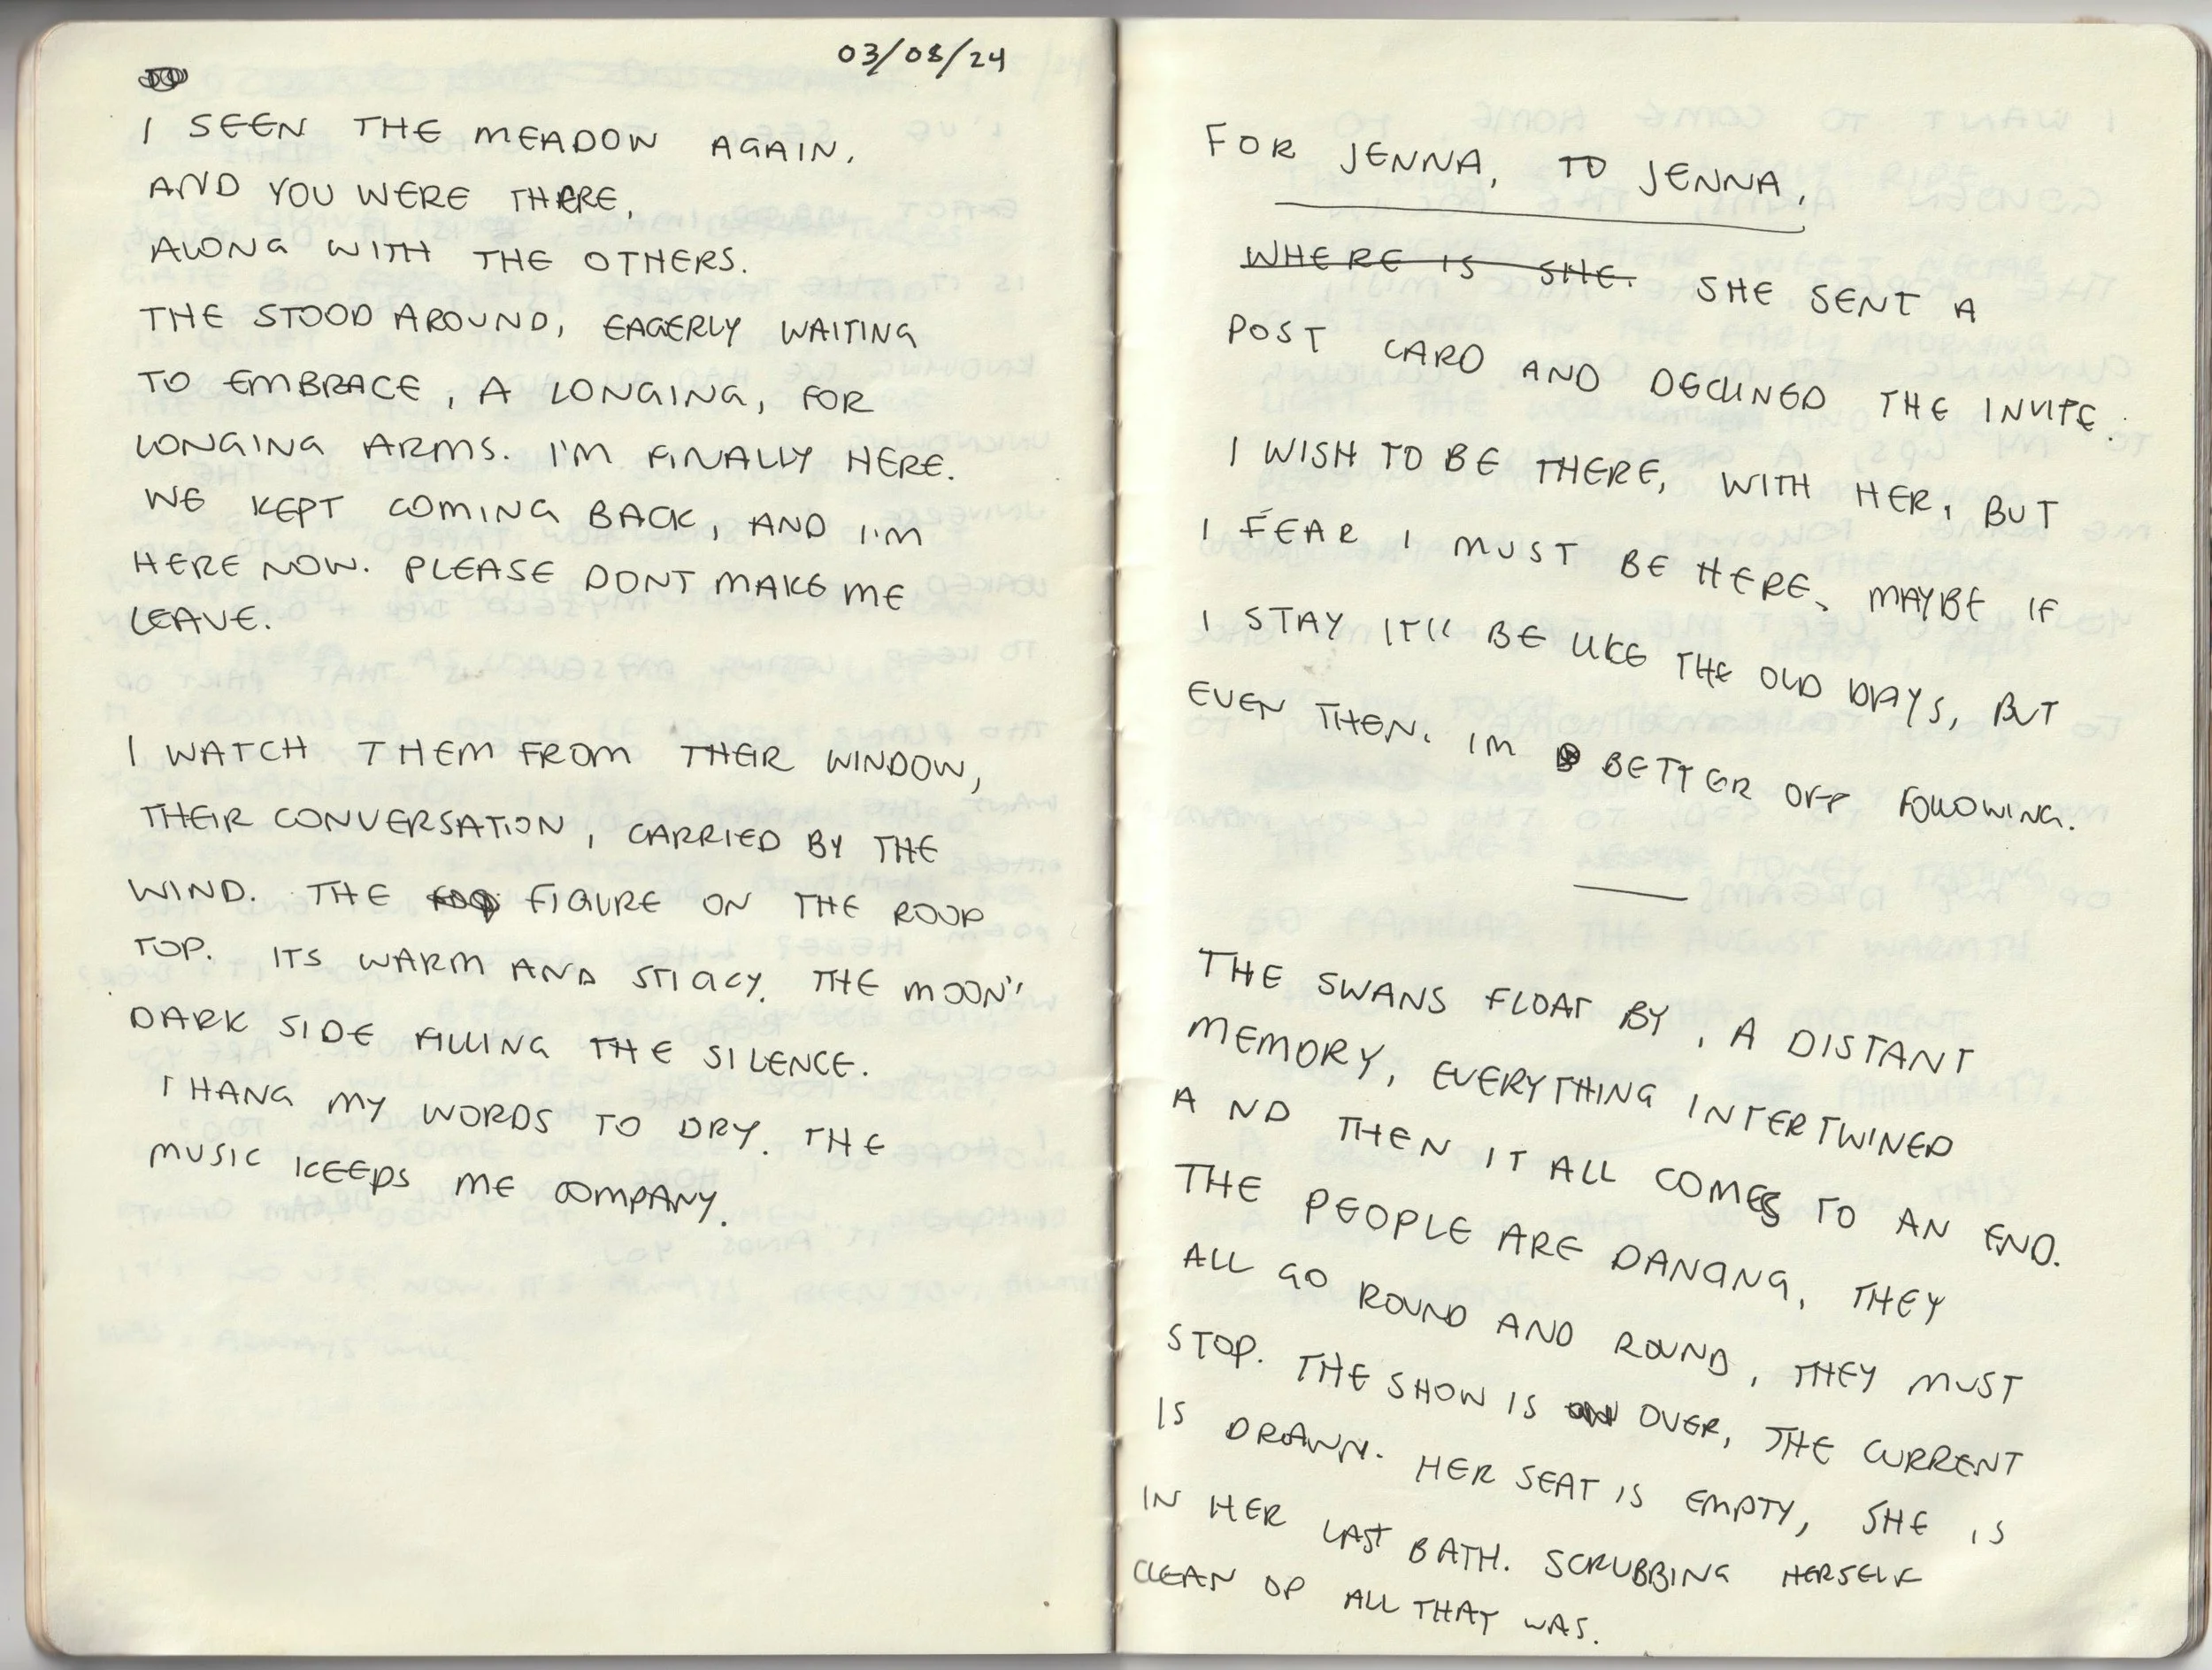 03/08/24
I SEEN THE MEADOW AGAIN.
AND YOU WERE THERE,
ALONG WITH THE OTHERS.
THE STOOD AROUND, EAGERLY WAITING
TO EMBRACE, A LONGING, FOR
LONGING ARMS. I'M FINALLY HERE.
WE KEPT COMING BACK, AND I'M
HERE NOW. PLEASE DONT MAKE ME
LEAVE.
I WATCH THEM FROM THEIR WINDOW,
THEIR CONVERSATION, CARRIED BY THE
WIND. THE FIGURE ON THE ROOF
TOP. ITS WARM AND STICKY. THE MOON'
DARK SIDE FILLING THE SILENCE.
I HANG MY WORDS TO DRY. THE
MUSIC KEEPS ME COMPANY.
FOR JENNA, TO JENNA,
WHERE IS SHE. SHE SENT A
POST CARD AND DECLINED THE INVITE.
I WISH TO BE THERE, WITH HER, BUT
I FEAR I MUST BE HERE, MAYBE IF
I STAY IT'LL BE LIKE THE OLD DAYS, BUT
EVEN THEN. IM BETTER OFF FOLLOWING.
THE SWANS FLOAT BY, A DISTANT
MEMORY, EVERYTHING INTERTWINED
AND THEN IT ALL COMES TO AN END.
THE PEOPLE ARE DANCING, THEY
ALL GO ROUND AND ROUND, THEY MUST
STOP. THE SHOW IS OVER, THE CURRENT
IS DRAWN. HER SEAT IS EMPTY, SHE IS
IN HER LAST BATH. SCRUBBING HERSELF
CLEAN OF ALL THAT WAS.